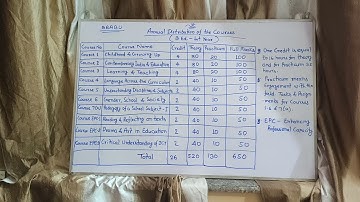 BRABU
Annual Distribution of the Courses
(B.Ed. - 1st Year)
Course No Course Name Credit Theory Practicum Full Marks
Course 1 Childhood & Growing Up 4 80 20 100
Course 2 Contemporary India & Education 4 80 20 100
Course 3 Learning & Teaching 4 80 20 100
Course 4 Language Across the Curriculum 2 40 10 50
Course 5 Understanding Disciplines & Subjects 2 40 10 50
Course 6 Gender, School & Society 2 40 10 50
Course 7(a) Pedagogy of a School Subject-I 2 40 10 50
Course EPC 1 Reading & Reflecting on Texts 2 40 10 50
Course EPC 2 Drama & Art in Education 2 40 10 50
Course EPC 3 Critical Understanding of ICT 2 40 10 50
Total 26 520 130 650
One Credit is equal
to 16 hours for theory
and for Practicum 32
hours.
Practicum means
Engagement with the
field. Tasks & Assign
ments for Courses
1-6 & 7(a)
EPC - Enhancing
Professional Capacity